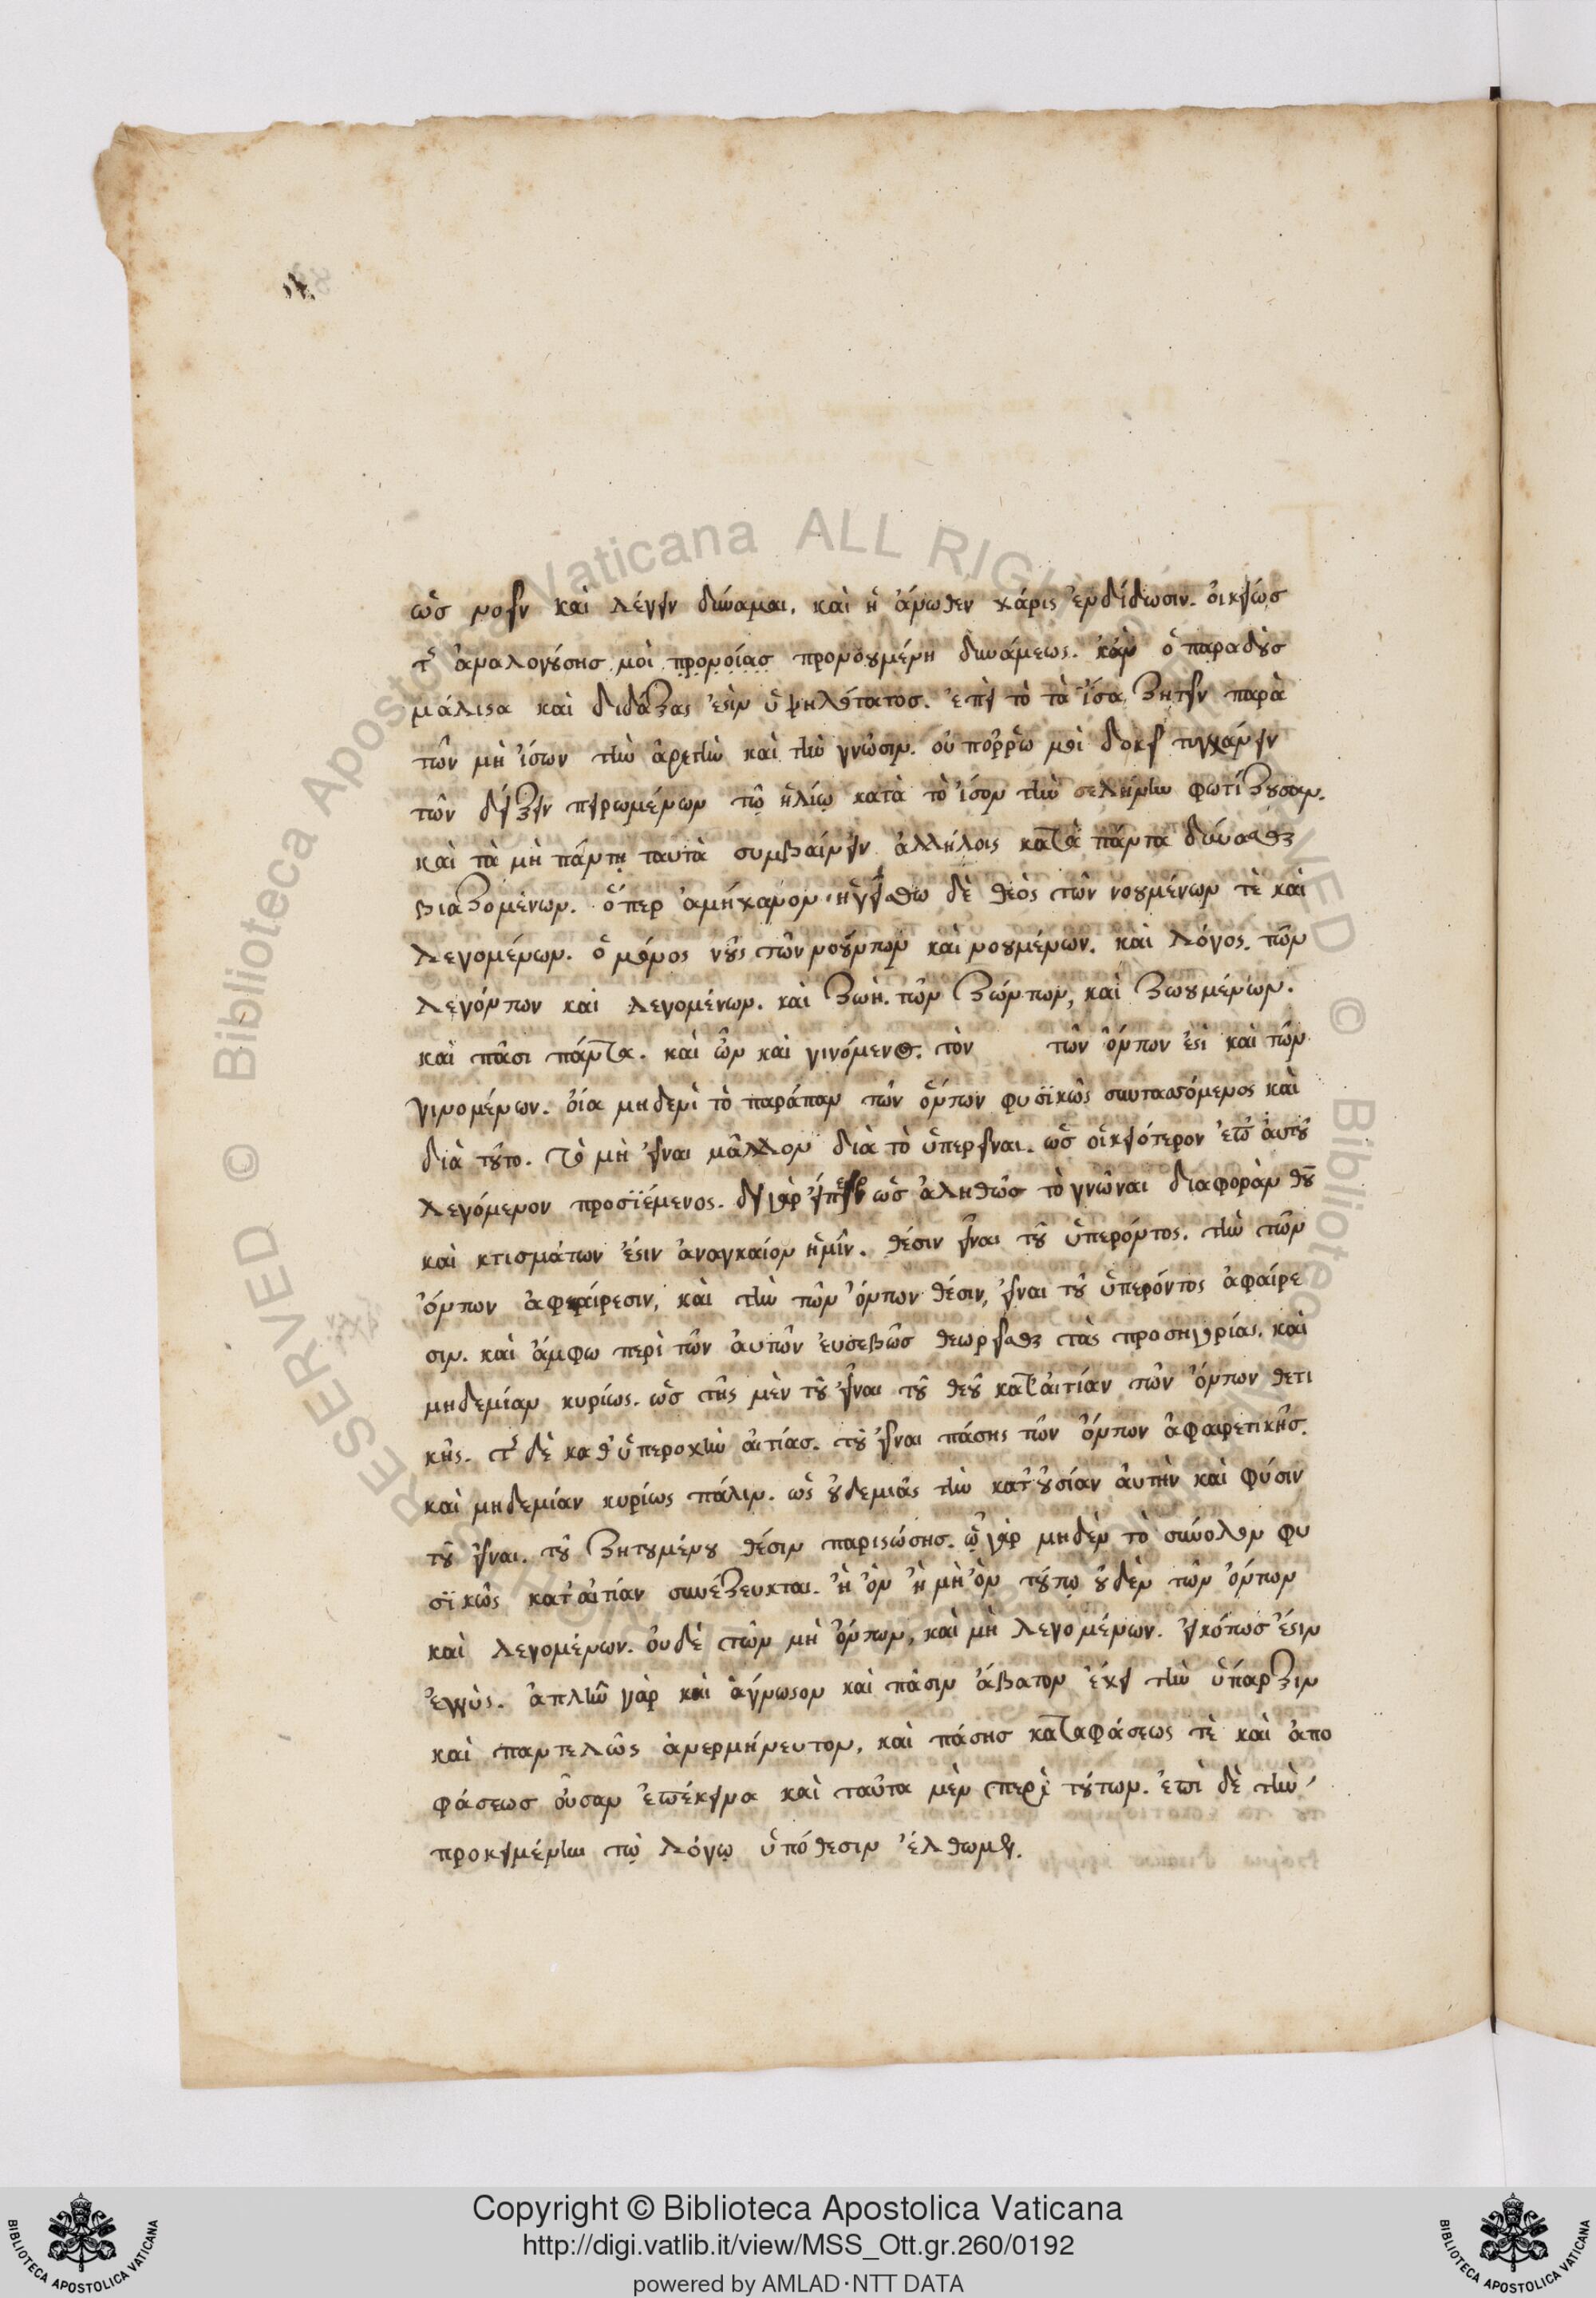 ὡς νοεῖν καὶ λέγειν δύναμαι, καὶ ἡ ἄνωθεν χάρις ἐνδίδωσιν. οἰκείως
τῆς ἀναλογούσης μοι προνοίας προνουμένη δυνάμεως. κἂν ὁ παραδοὺς
μάλιστα καὶ διδάξας ἐστὶν ὑψηλότατος. ἐπεὶ τὸ τὰ ἴσα ζητεῖν παρὰ
τῶν μὴ ἴσων τὴν ἀρετὴν καὶ τὴν γνῶσιν. οὐ πόρρω μοι δοκεῖ τυγχάνειν
τῶν δείξειν πειρωμένων τῷ ἡλίῳ κατὰ τὸ ἴσον τὴν σελήνην φωτίζουσαν.
καὶ τὰ μὴ πάντη ταυτὰ συμβαίνειν ἀλλήλοις κατὰ πάντα δύνασθαι
βιαζομένων. ὅπερ ἀμήχανον. ἡγείσθω δὲ θεὸς τῶν νοουμένων τὲ καὶ
λεγομένων. ὁ μόνος νοῦς τῶν νοούντων καὶ νοουμένων. καὶ λόγος. τῶν
λεγόντων καὶ λεγομένων. καὶ ζωὴ. τῶν ζώντων, καὶ ζωουμένων.
καὶ πᾶσι πάντα. καὶ ὢν καὶ γινόμενος. τὸν τῶν ὄντων ἐστὶ καὶ τῶν
γινομένων. οἷα μηδενὶ τὸ παράπαν τῶν ὄντων φυσϊκῶς συντασσόμενος καὶ
διὰ τοῦτο. τὸ μὴ εἶναι μᾶλλον διὰ τὸ ὑπερεῖναι. ὡς οἰκειότερον ἐπ' αὐτοῦ
λεγόμενον προσϊέμενος. δεῖ γὰρ εἴπερ ὡς ἀληθῶς τὸ γνῶναι διαφορὰν θεοῦ
καὶ κτισμάτων ἐστιν ἀναγκαῖον ἡμῖν. θέσιν εἶναι τοῦ ὑπερόντος. τὴν τῶν
ὄντων ἀφαίρεσιν, καὶ τὴν τῶν ὄντων θέσιν, εἶναι τοῦ ὑπερόντος ἀφαίρε
σιν. καὶ ἄμφω περὶ τῶν αὐτῶν εὐσεβῶς θεωρεῖσθαι τὰς προσηγορίας. καὶ
μηδεμίαν κυρίως. ὡς τῆς μὲν τοῦ εἶναι τοῦ θεοῦ κατ' αἰτίαν τῶν ὄντων θετι
κῆς. τῆς δὲ καθ' ὑπεροχὴν αἰτίας. τοῦ εἶναι πάσης τῶν ὄντων ἀφαιρετικῆς.
καὶ μηδεμίαν κυρίως πάλιν. ὡς οὐδεμιᾶς τὴν κατ' οὐσίαν αὐτὴν καὶ φύσιν
τοῦ εἶναι. τοῦ ζητουμένου θέσιν παριστώσης. ᾧ γὰρ μηδὲν τὸ σύνολον φυ
σϊκῶς κατ' αἰτίαν συνέζευκται. ἢ ὂν ἢ μὴ ὂν τούτῳ οὐδὲν τῶν ὄντων
καὶ λεγομένων. οὐδὲ τῶν μὴ ὄντων, καὶ μὴ λεγομένων. εἰκότως ἐστιν
ἐγγὺς. ἁπλῆν γὰρ καὶ ἄγνωστον καὶ πᾶσιν ἄβατον ἔχει τὴν ὕπαρξιν
καὶ παντελῶς ἀνερμήνευτον, καὶ πάσης καταφάσεως τὲ καὶ ἀπο
φάσεως οὖσαν ἐπέκεινα καὶ ταῦτα μὲν περὶ τούτων. ἐπὶ δὲ τὴν
προκειμένην τῷ λόγῳ ὑπόθεσιν ἔλθωμεν.
© Biblioteca Apostolica Vaticana ALL RIGHTS RESERVED
Copyright © Biblioteca Apostolica Vaticana
http://digi.vatlib.it/view/MSS_Ott.gr.260/0192
powered by AMLAD·NTT DATA
BIBLIOTECA APOSTOLICA VATICANA
BIBLIOTECA APOSTOLICA VATICANA